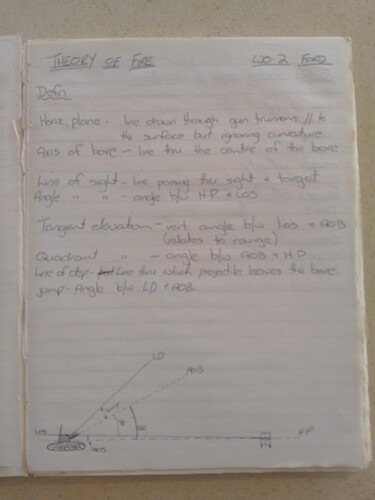 THEORY OF FIRE WO 2 FORD
Defn
Horiz. plane - line drawn through gun trunnions // to
the surface but ignoring curvature.
Axis of bore - line thru the centre of the bore.
Line of sight - line passing thru sight & target
Angle " " - angle b/w H.P & LOS
Tangent elevation - vert angle b/w LOS & AOB
(relates to range)
Quadrant " - angle b/w AOB & H.P.
Line of dep - line thru which projectile leaves the bore.
Jump - Angle b/w LD & AOB.
LD
AOB
Jump
LOS
H.P